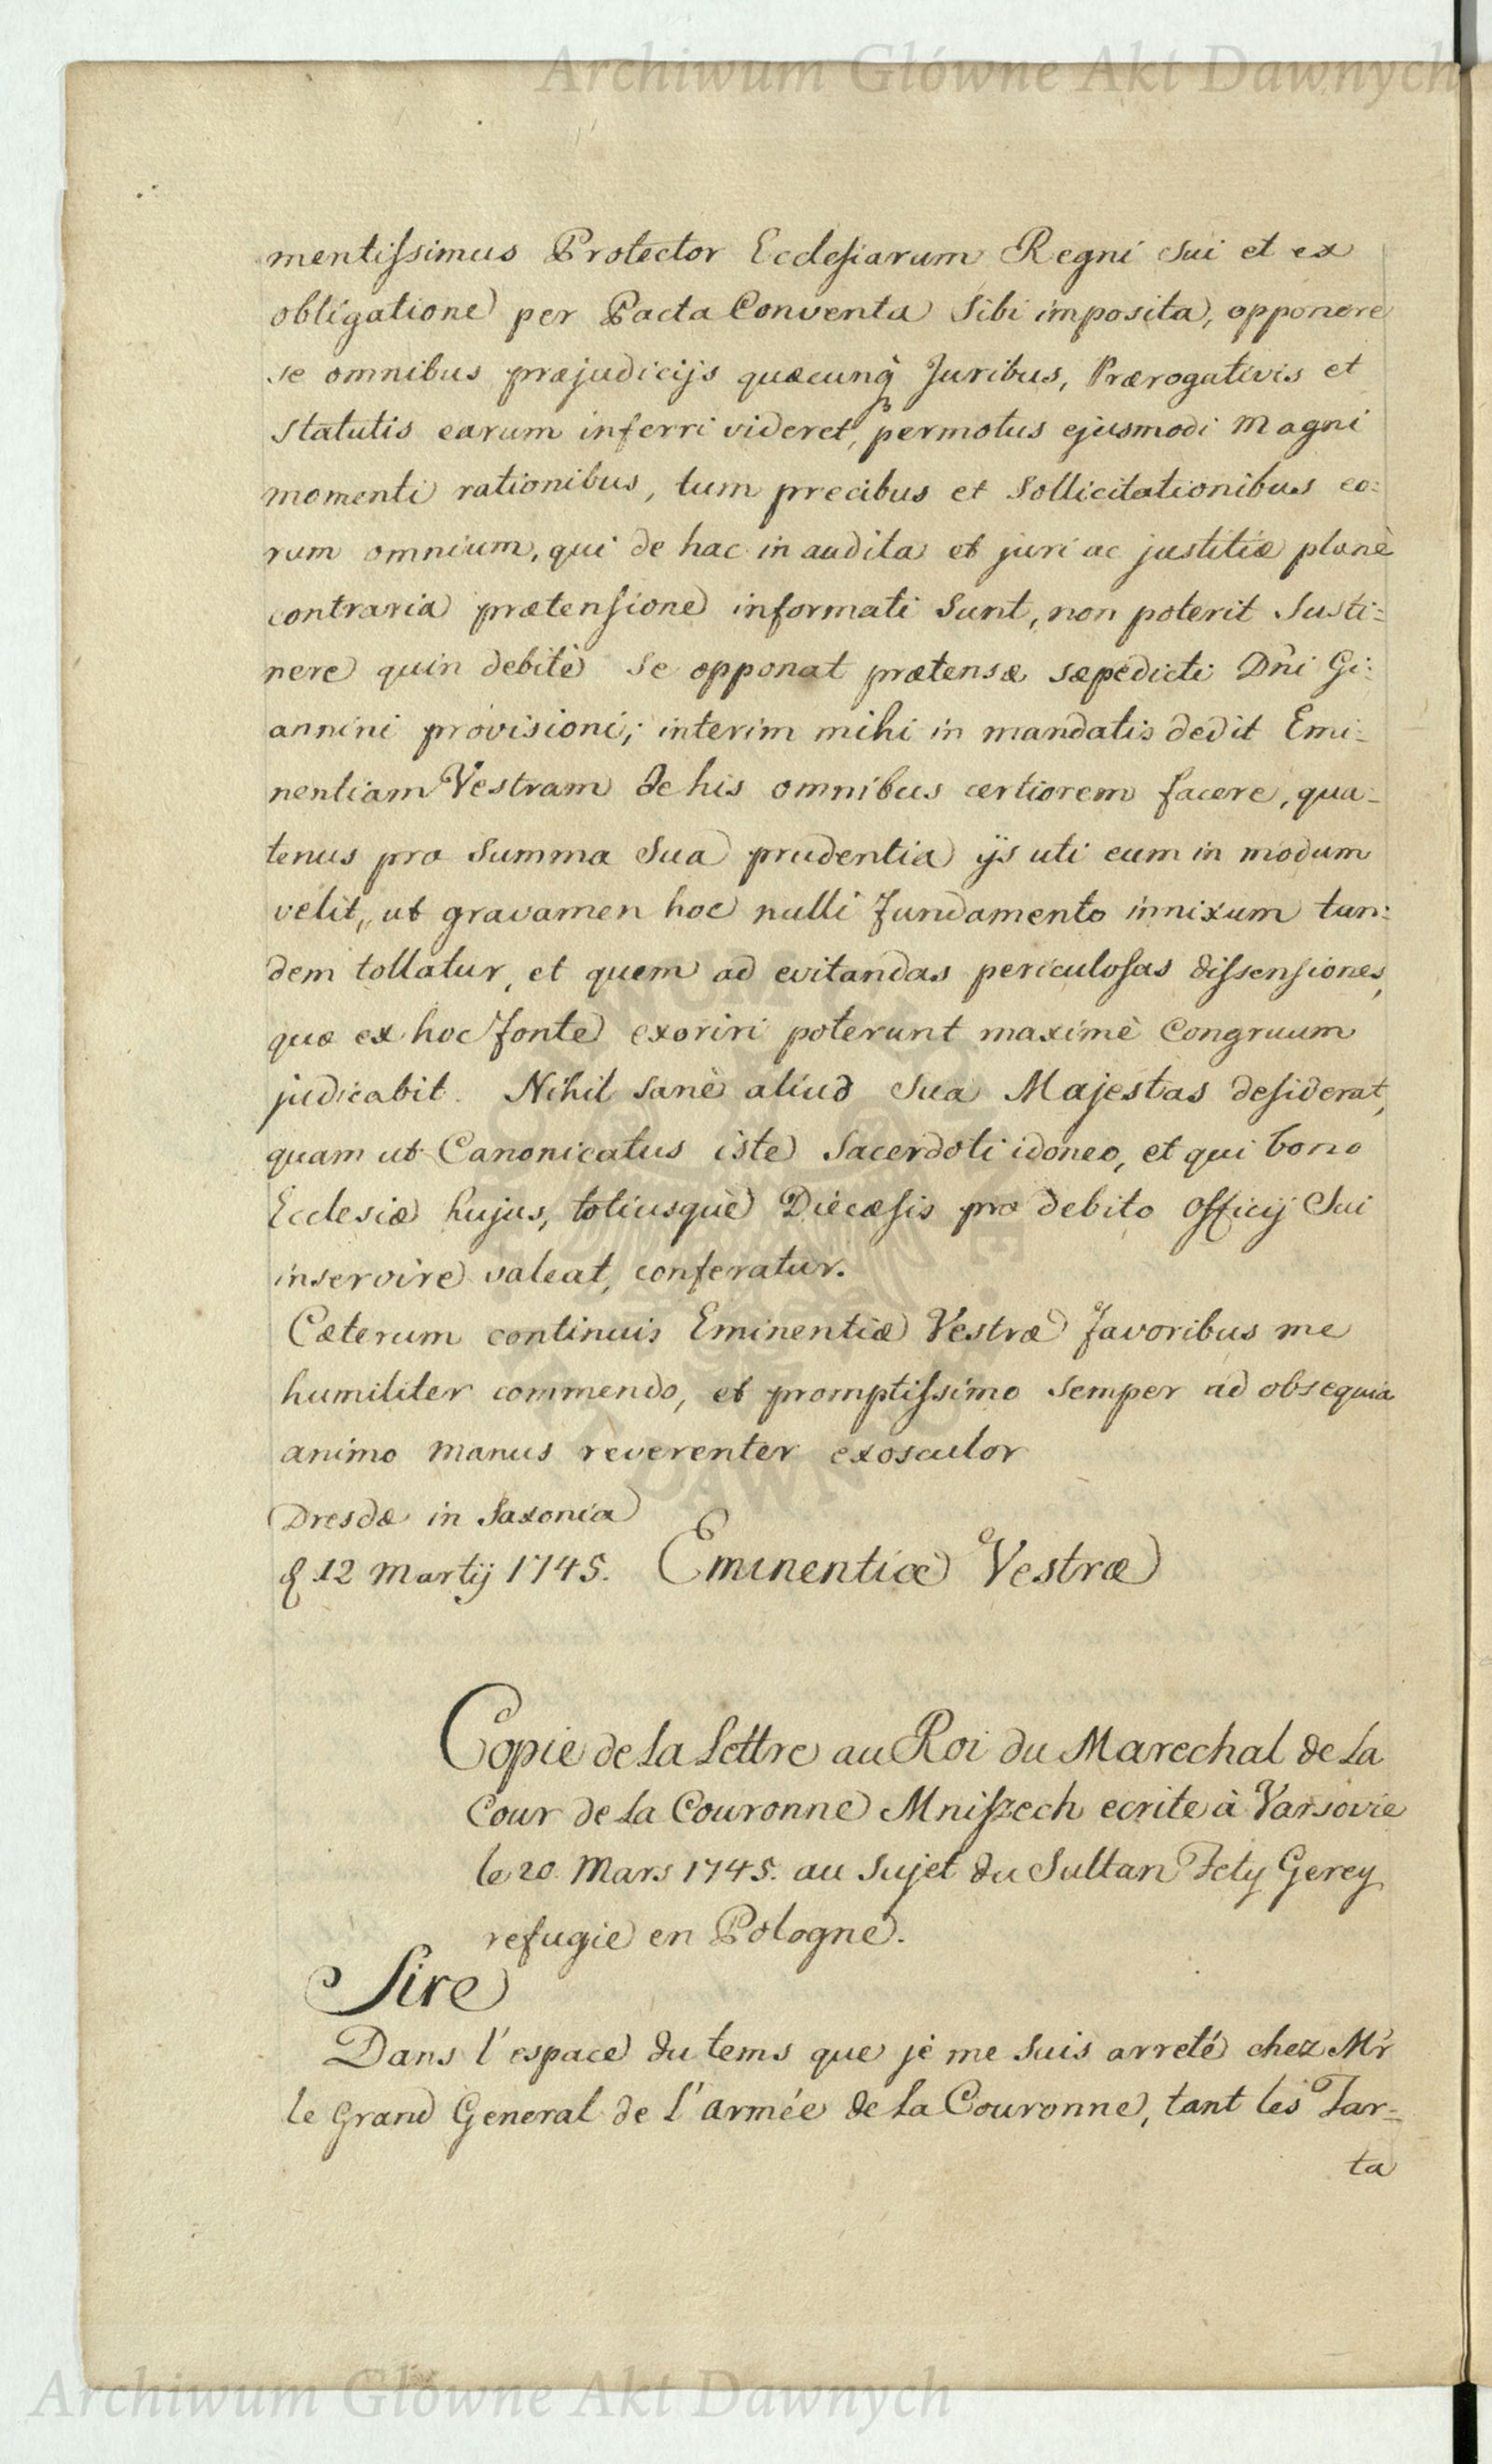 Archiwum Główne Akt Dawnych
mentissimus Protector Ecclesiarum Regni Sui et ex
obligatione per Pacta Conventa Sibi imposita, opponere
se omnibus præjudicijs quæcunq̀ Juribus, Prærogativis et
Statutis earum inferri videret, permotus ejusmodi Magni
momenti rationibus, tum precibus et Sollicitationibus eo=
rum omnium, qui de hac inaudita et juri ac justitiæ planè
contraria prætensione informati Sunt, non poterit Susti=
nere quin debitè Se opponat prætensæ sæpedicti Dñi Gi=
annini provisioni; interim mihi in mandatis dedit Emi=
nentiam Vestram de his omnibus certiorem facere, qua=
tenus pro Summa Sua prudentia ijs uti eum in modum
velit, ut gravamen hoc nulli fundamento innixum tan=
dem tollatur, et quem ad evitandas periculosas dissensiones,
quæ ex hoc fonte exoriri poterunt maximè Congruum
judicabit. Nihil Sanè aliud Sua Majestas desiderat,
quam ut Canonicatus iste Sacerdoti idoneo, et qui bono
Ecclesiæ hujus, totiusquè Diecæsis pro debito Officij Sui
inservire valeat, conferatur.
Cæterum continuis Eminentiæ Vestræ favoribus me
humiliter commendo, et promptissimo Semper ad obsequia
animo manus reverenter exosculor
Dresdæ in Saxonia
d 12 Martij 1745. Eminentiæ Vestræ
Copie de La Lettre au Roi du Marechal de La
Cour de La Couronne Mniszech ecrite à Varsovie
le 20. Mars 1745. au Sujet du Sultan Fety Gerey
refugie en Pologne.
Sire
Dans l'espace du tems que je me Suis arreté chez Mr
le Grand General de L'armée de La Couronne, tant les Tar=
ta
Archiwum Główne Akt Dawnych